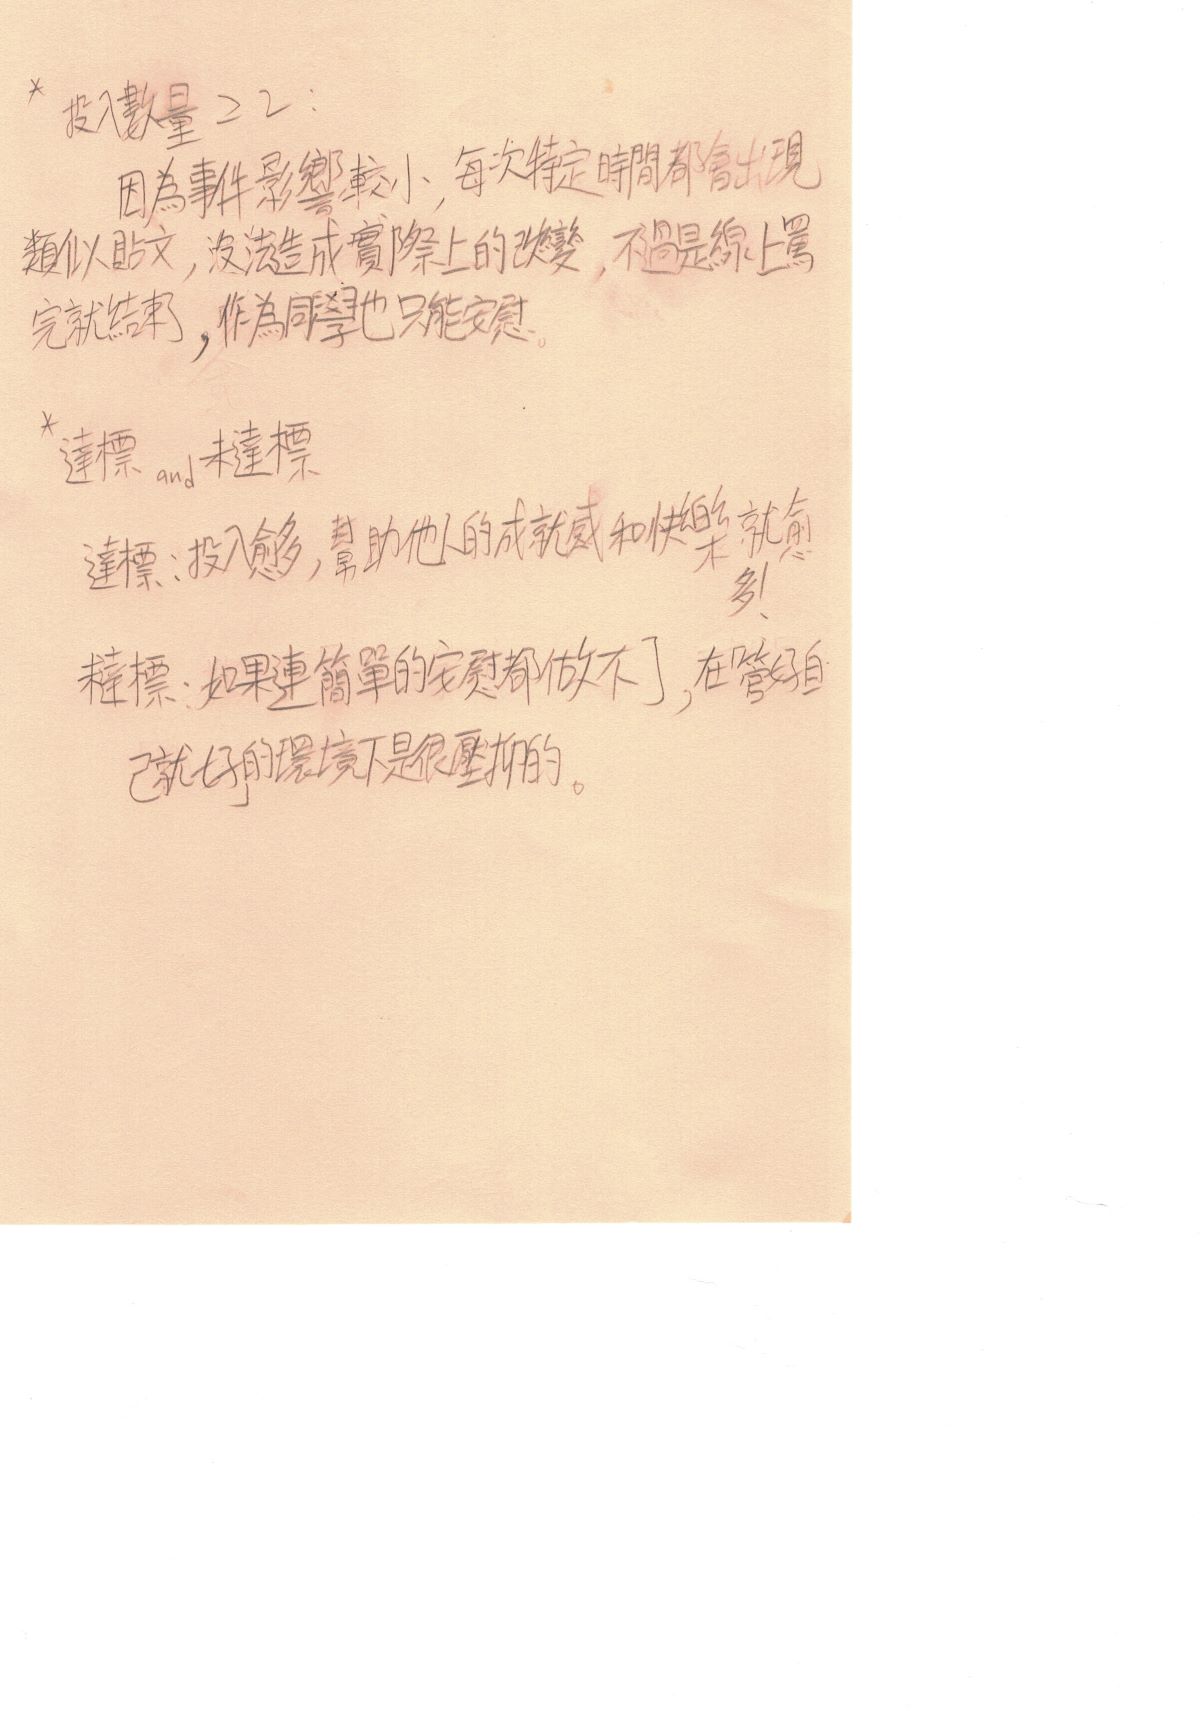 * 投入數量≥2:
因為事件影響較小,每次特定時間都會出現
類似貼文,沒法造成實際上的改變,不過是線上罵
完就結束了,作為同學也只能安慰。
* 達標 and 未達標
達標:投入愈多,幫助他人的成就感和快樂就愈
多!
未達標:如果連簡單的安慰都做不了,在「管好自
己就好」的環境下是很壓抑的。